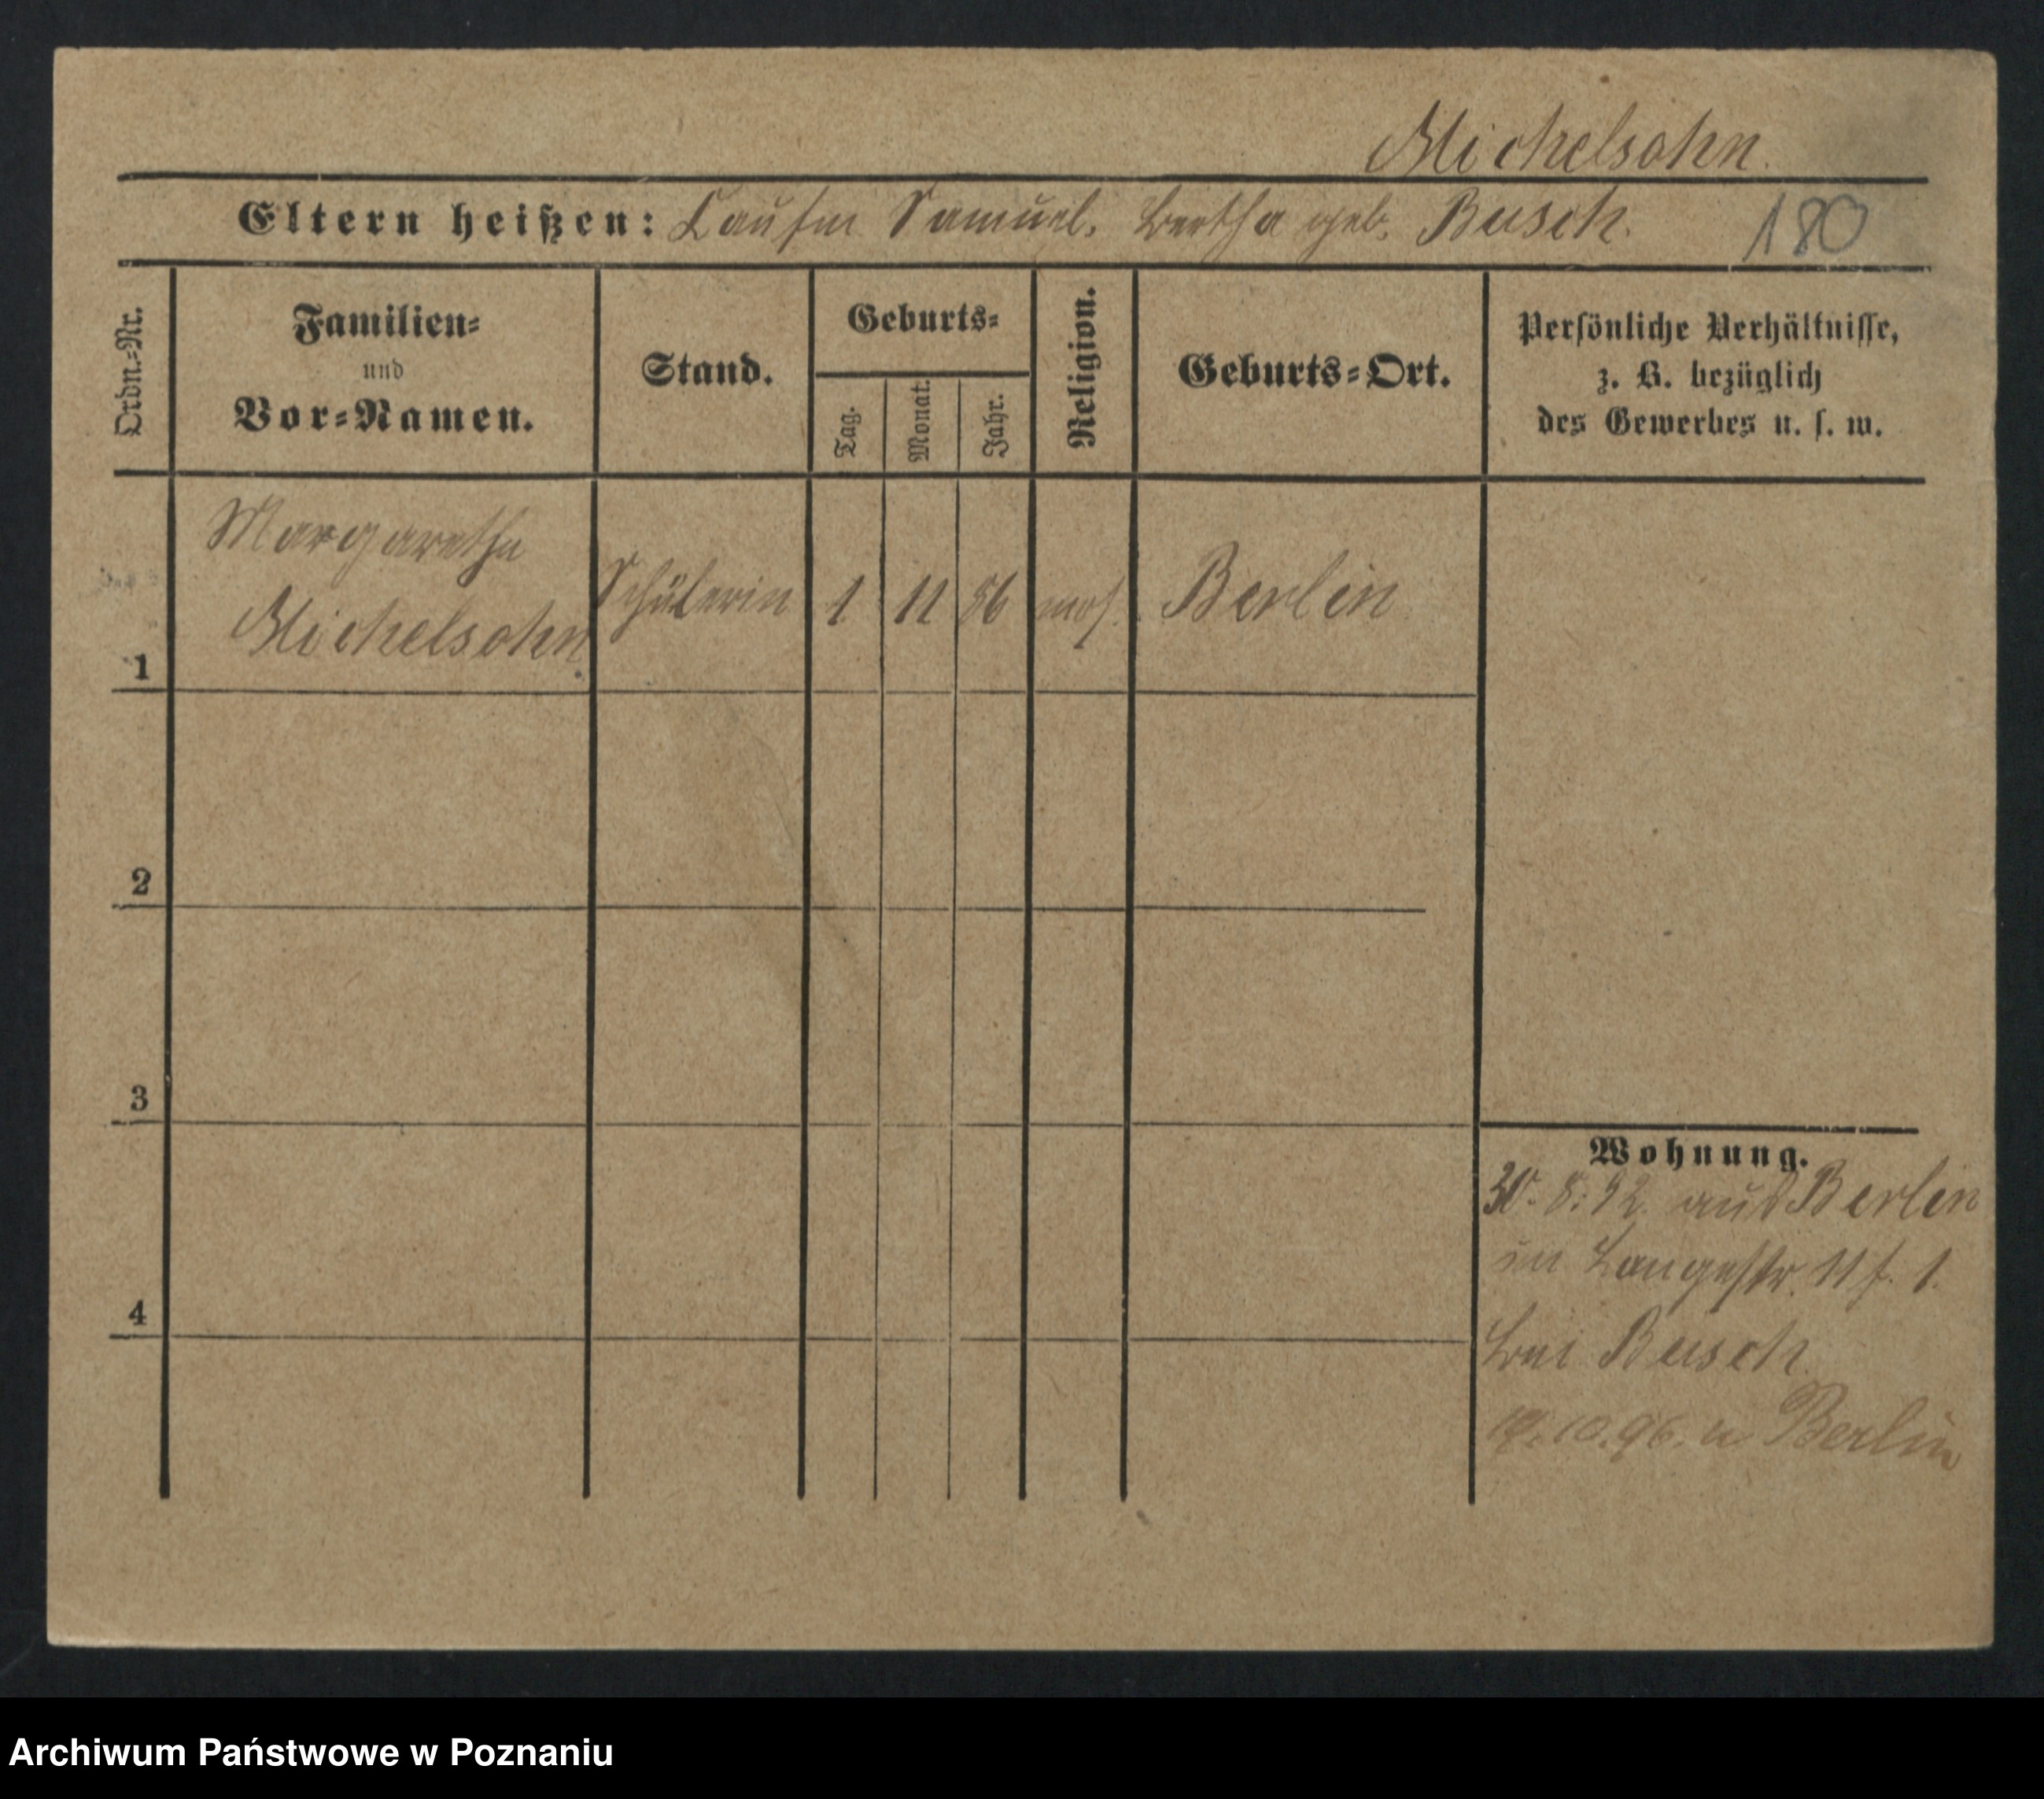 Michelsohn.
Eltern heißen: Kaufm. Samuel, Bertha geb. Busch. 180
Ordn.-Nr.
Familien-
und
Vor-Namen.
Stand.
Geburts-
Tag.
Monat.
Jahr.
Religion.
Geburts-Ort.
Persönliche Verhältnisse,
z. B. bezüglich
des Gewerbes u. s. w.
Margarethe
Michelsohn.
Schülerin 1 11 86 mos. Berlin
1
2
3
4
Wohnung.
30. 8. 92. aus Berlin
in Langestr. 11 f. 1.
bei Busch
10.96. n Berlin
Archiwum Państwowe w Poznaniu